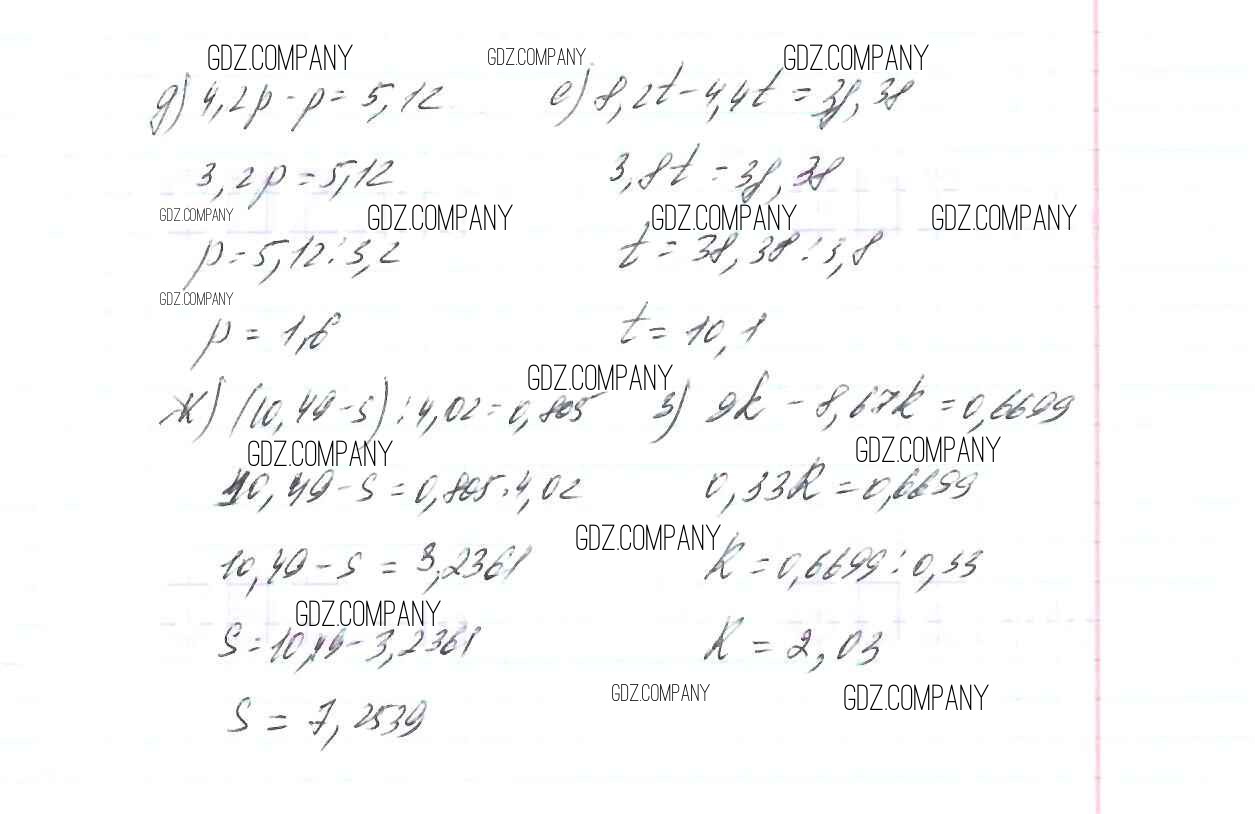 GDZ.COMPANY GDZ.COMPANY GDZ.COMPANY
д) 4,2p - p = 5,12
е) 8,2t - 4,4t = 38,38
3,2p = 5,12
3,8t = 38,38
GDZ.COMPANY GDZ.COMPANY GDZ.COMPANY GDZ.COMPANY
p = 5,12 : 3,2
t = 38,38 : 3,8
GDZ.COMPANY
p = 1,6
t = 10,1
GDZ.COMPANY
ж) (10,49 - s) : 4,02 = 0,805
з) 9k - 8,67k = 0,6699
GDZ.COMPANY GDZ.COMPANY
10,49 - s = 0,805 · 4,02
0,33k = 0,6699
GDZ.COMPANY
10,49 - s = 3,2361
k = 0,6699 : 0,33
GDZ.COMPANY
s = 10,49 - 3,2361
k = 2,03
GDZ.COMPANY GDZ.COMPANY
s = 7,2539